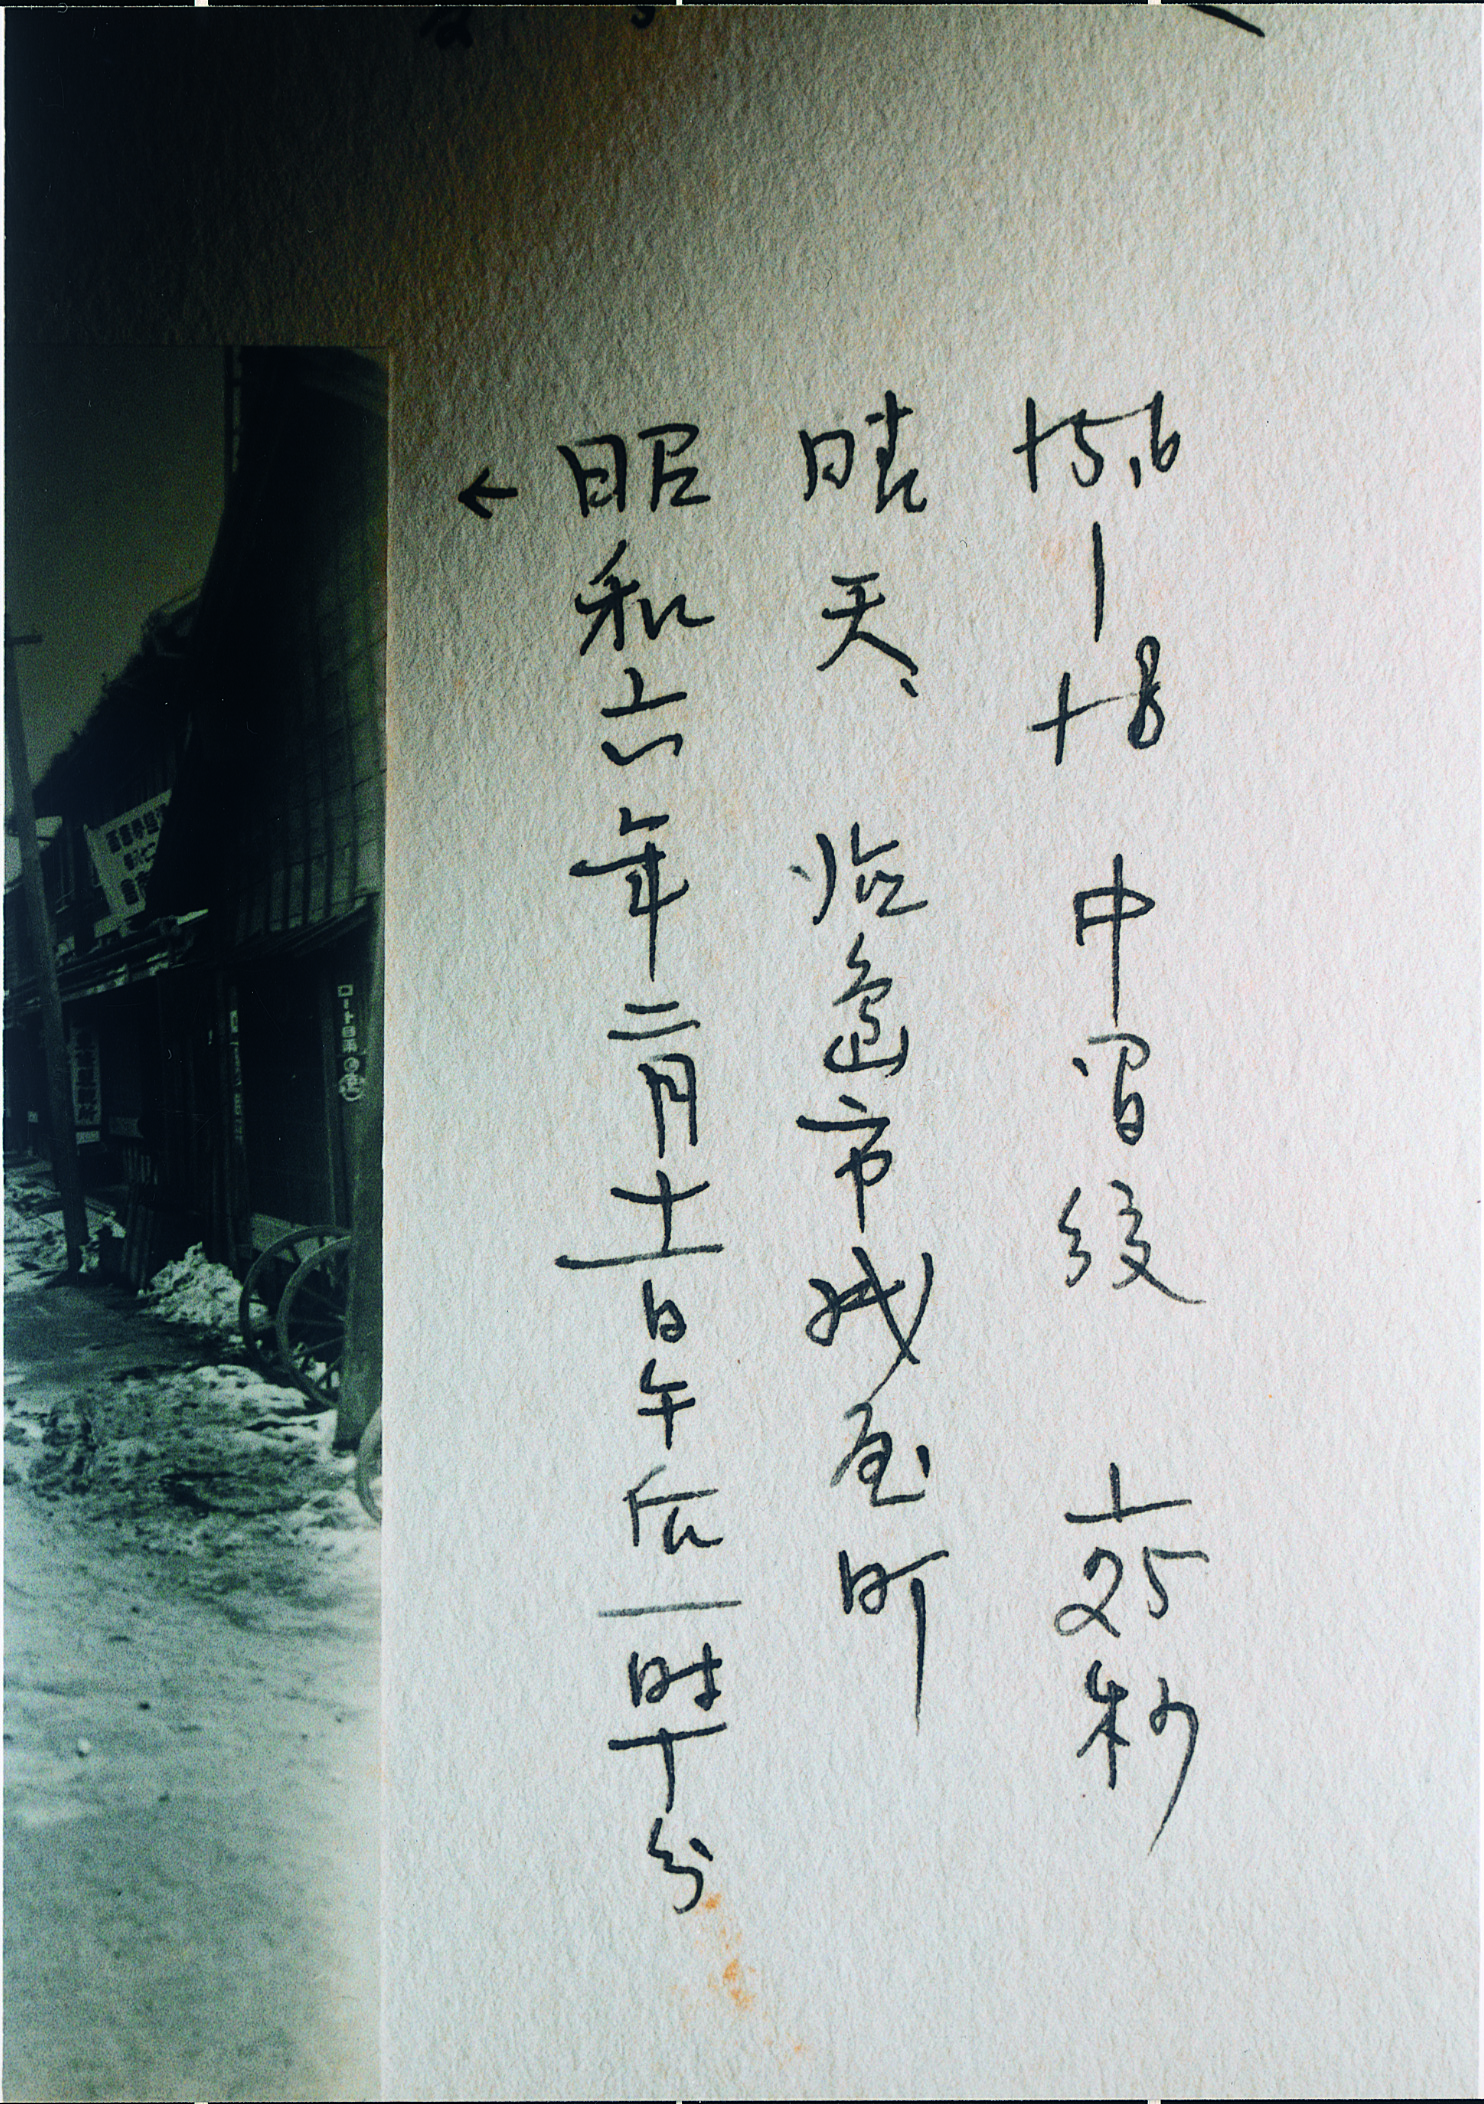 f5.6 — f8 中間絞 1/25秒
晴天、 島市 屋町
← 昭和六年二月十一日午后一時十分
ロート目薬